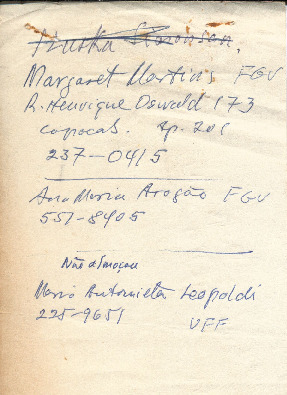 Margaret Martins FGV
R. Henrique Oswald 173
copacab. ap. 201
237-0415
Ana Maria Aragão FGV
551-8905
Não
Maria Antonieta Leopoldi
225-9651
UFF